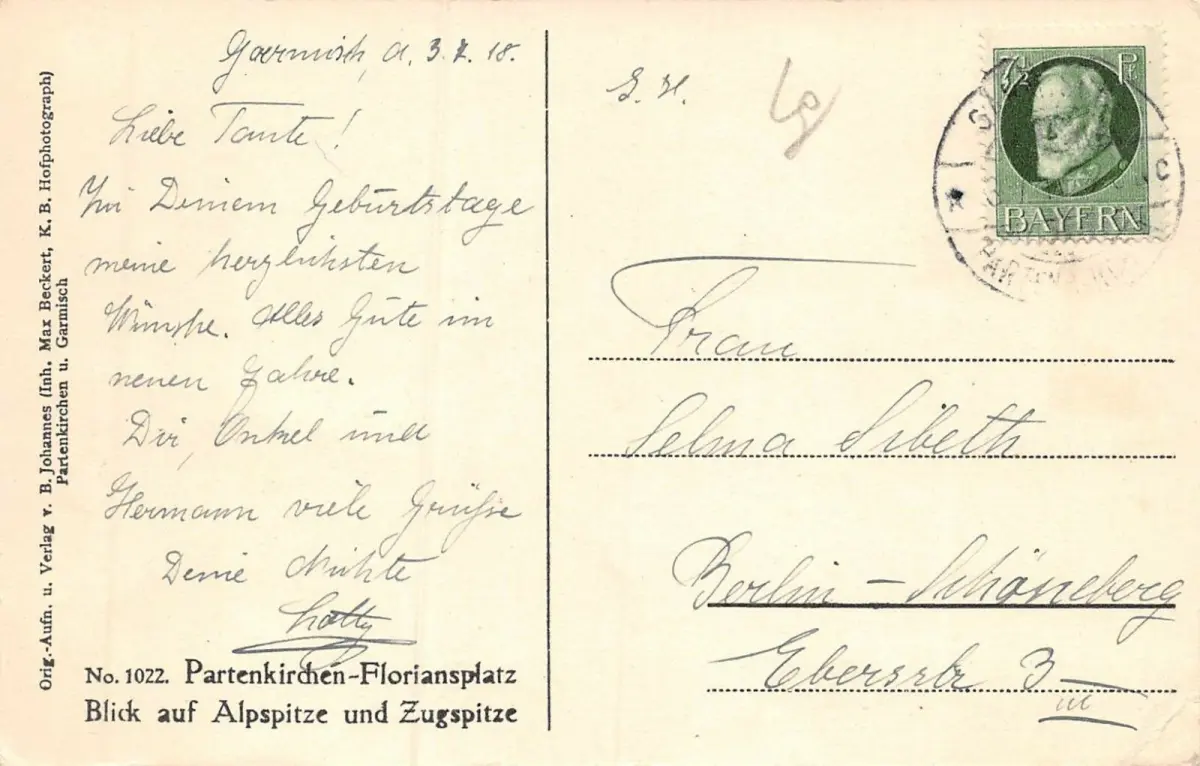 Garmisch, d. 3.7.18.
Liebe Tante!
Zu Deinem Geburtstage
meine herzlichsten
Wünsche. Alles Gute im
neuen Jahre.
Dir, Onkel und
Hermann viele Grüsse
Deine Nichte
Lotty
No. 1022. Partenkirchen-Floriansplatz
Blick auf Alpspitze und Zugspitze
Orig.-Aufn. u. Verlag v. B. Johannes (Inh. Max Beckert, K. B. Hofphotograph)
Partenkirchen u. Garmisch
7½ Pf
BAYERN
Frau
Selma Sibeth
Berlin - Schöneberg
Eberstr 3
III